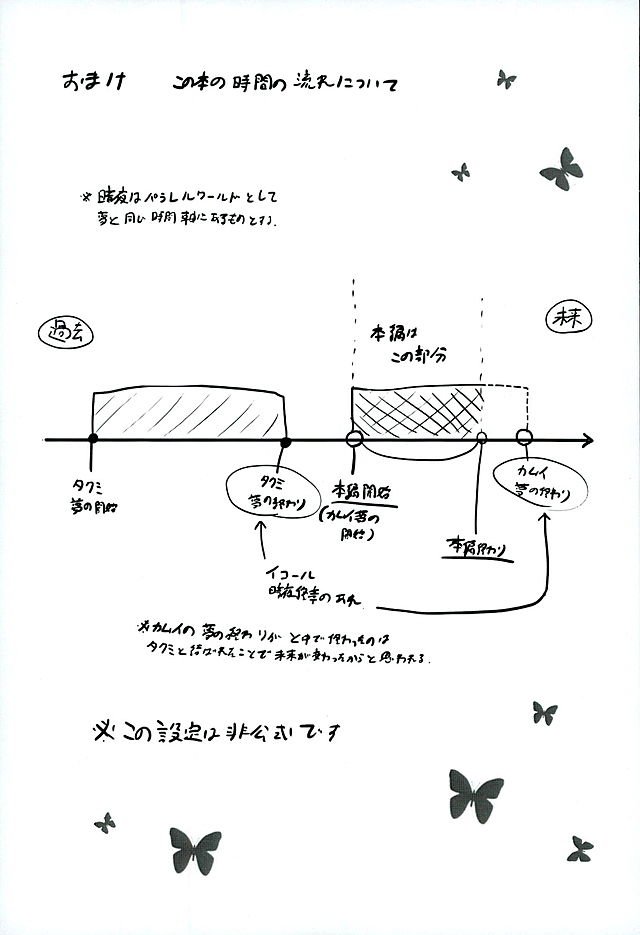 おまけ　この本の時間の流れについて
※暗夜はパラレルワールドとして
夢と同じ時間軸にあるものとする。
過去
未来
本編は
この部分
タクミ
夢の開始
タクミ
夢の終わり
本編開始
(カムイ夢の
開始)
本編終わり
カムイ
夢の終わり
イコール
暗夜終章のあれ
※カムイの夢の終わりが途中で終わったのは
タクミと結ばれたことで未来が変わったからと思われる。
※この設定は非公式です